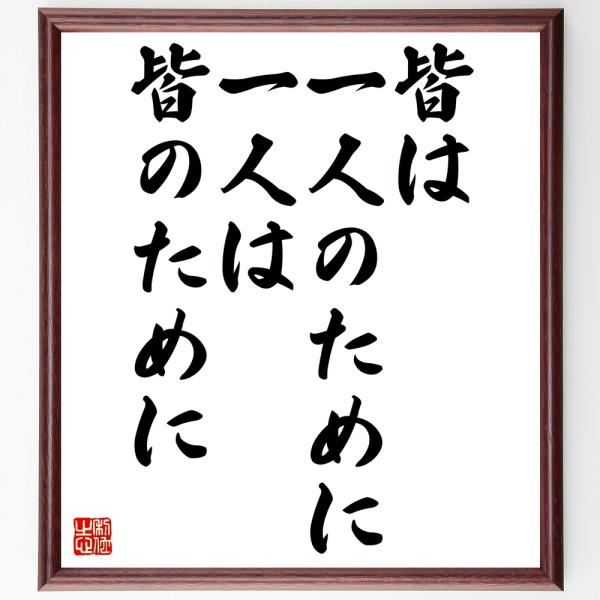 皆は
一人のために
一人は
皆のために